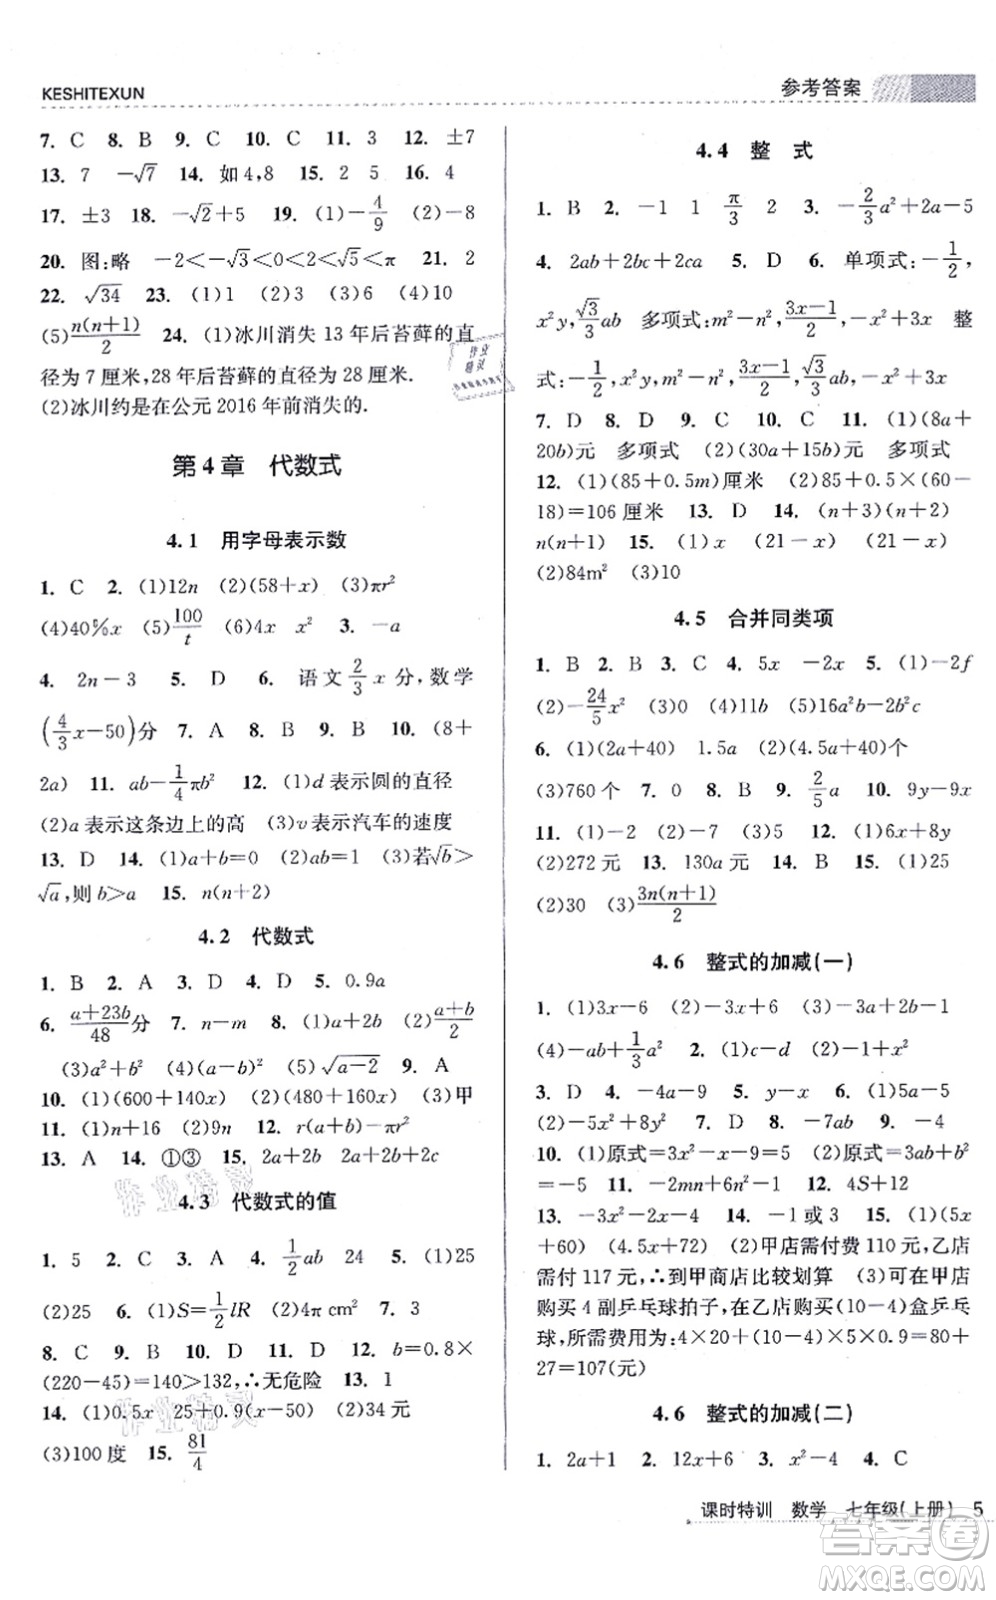 KESHITEXUN
参考答案
7. C 8. B 9. C 10. C 11. 3 12. ±7
13. 7 -√7 14. 如4,8 15. 2 5 16. 4
17. ±3 18. -√2+5 19. (1)-4/9 (2)-8
20. 图:略 -2<-√3<0<2<√5<π 21. 2
22. √34 23. (1)1 (2)3 (3)6 (4)10
(5)n(n+1)/2 24. (1)冰川消失 13 年后苔藓的直
径为 7 厘米,28 年后苔藓的直径为 28 厘米.
(2)冰川约是在公元 2016 年前消失的.
第 4 章 代数式
4.1 用字母表示数
1. C 2. (1)12n (2)(58+x) (3)πr²
(4)40%x (5)100/t (6)4x x² 3. -a
4. 2n-3 5. D 6. 语文2/3x分,数学
(4/3x-50)分 7. A 8. B 9. B 10. (8+
2a) 11. ab-1/4πb² 12. (1)d 表示圆的直径
(2)a 表示这条边上的高 (3)v 表示汽车的速度
13. D 14. (1)a+b=0 (2)ab=1 (3)若√b>
√a,则 b>a 15. n(n+2)
4.2 代数式
1. B 2. A 3. D 4. D 5. 0.9a
6. (a+23b)/48分 7. n-m 8. (1)a+2b (2)(a+b)/2
(3)a²+b² (4)(a-b)² (5)√(a-2) 9. A
10. (1)(600+140x) (2)(480+160x) (3)甲
11. (1)n+16 (2)9n 12. r(a+b)-πr²
13. A 14. ①③ 15. 2a+2b 2a+2b+2c
4.3 代数式的值
1. 5 2. C 3. A 4. 1/2ab 24 5. (1)25
(2)20 6. (1)S=1/2lR (2)4π cm² 7. 3
8. C 9. B 10. D 11. D 12. b=0.8×
(220-45)=140>132,∴无危险 13. 1
14. (1)0.5x 25+0.9(x-50) (2)34元
(3)100 度 15. 81/4
4.4 整 式
1. B 2. -1 1 π/3 2 3. -2/3a²+2a-5
4. 2ab+2bc+2ca 5. D 6. 单项式:-1/2,
x²y,√3/3ab 多项式:m²-n²,(3x-1)/2,x²+x 整
式:-1/2,x²y,m²-n²,(3x-1)/2,√3/3ab,x²+x
7. D 8. D 9. C 10. C 11. (1)(8a+
20b)元 多项式 (2)(30a+15b)元 多项式
12. (1)(85+0.5m)厘米 (2)85+0.5×(60-
18)=106 厘米 13. D 14. (n+3)(n+2)
n(n+1) 15. (1)x (21-x) (21-x)
(2)84m² (3)10
4.5 合并同类项
1. B 2. B 3. C 4. 5x -2x 5. (1)-2f
(2)-24/5x² (3)0 (4)11b (5)16a²b-2b²c
6. (1)(2a+40) 1.5a (2)(4.5a+40)个
(3)760 个 7. 0 8. B 9. 2/5a 10. 9y-9x
11. (1)-2 (2)-7 (3)5 12. (1)6x+8y
(2)272 元 13. 130a 元 14. B 15. (1)25
(2)30 (3)3n(n+1)/2
4.6 整式的加减(一)
1. (1)3x-6 (2)-3x+6 (3)-3a+2b-1
(4)-ab+1/3a² 2. (1)c-d (2)a-b
3. D 4. -4 5. 2x-9 6. (1)5a-5
(2)-5x²+8x² 7. B 8. -7ab 9. -4
10. (1)原式=-a+5=6 (2)原式=ab+b²
=5 11. -2mn+6n² 12. 4S+12
13. -3x²-2x-4 14. -1或3 15. (1)(5x
+60) (4.5x+72) (2)甲店需付费 110 元,乙店
需付 117 元,∴到甲商店比较划算 (3)可在甲店
购买 4 副乒乓球拍子,在乙店购买(10-4)盒乒乓
球,所需费用为:4×20+(10-4)×5×0.9=80+
27=107(元)
4.6 整式的加减(二)
1. 2a+1 2. 12x+6 3. x²-4 4. C
课时特训 数学 七年级(上册) 5
作业
精灵
作业精灵
作业精灵
答案圈
MXQE.COM